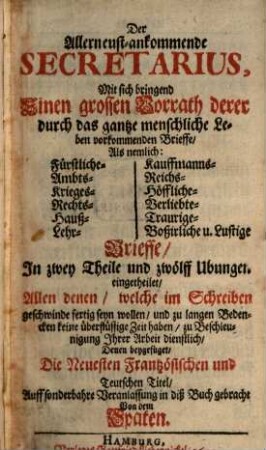 Der
Allerneust-ankommende
SECRETARIUS,
Mit sich bringend
Einen grossen Vorrath derer
durch das gantze menschliche Le-
ben vorkommenden Brieffe/
Als nemlich:
Fürstliche- Kauffmanns-
Ambts- Reichs-
Krieges- Höffliche-
Rechts- Verliebte-
Hauß- Traurige-
Lehr- Boßirliche u. Lustige
Brieffe/
In zwey Theile und zwölff Ubungen
eingetheilet/
Allen denen/ welche im Schreiben
geschwinde fertig seyn wollen/ und zu langen Beden-
cken keine überflüssige Zeit haben/ zu Beschleu-
nigung Ihrer Arbeit dienstlich/
Denen beygefüget/
Die Neuesten Frantzösischen und
Teutschen Titel/
Auff sonderbahre Veranlassung in diß Buch gebracht
Von dem
Spaten.
HAMBURG,